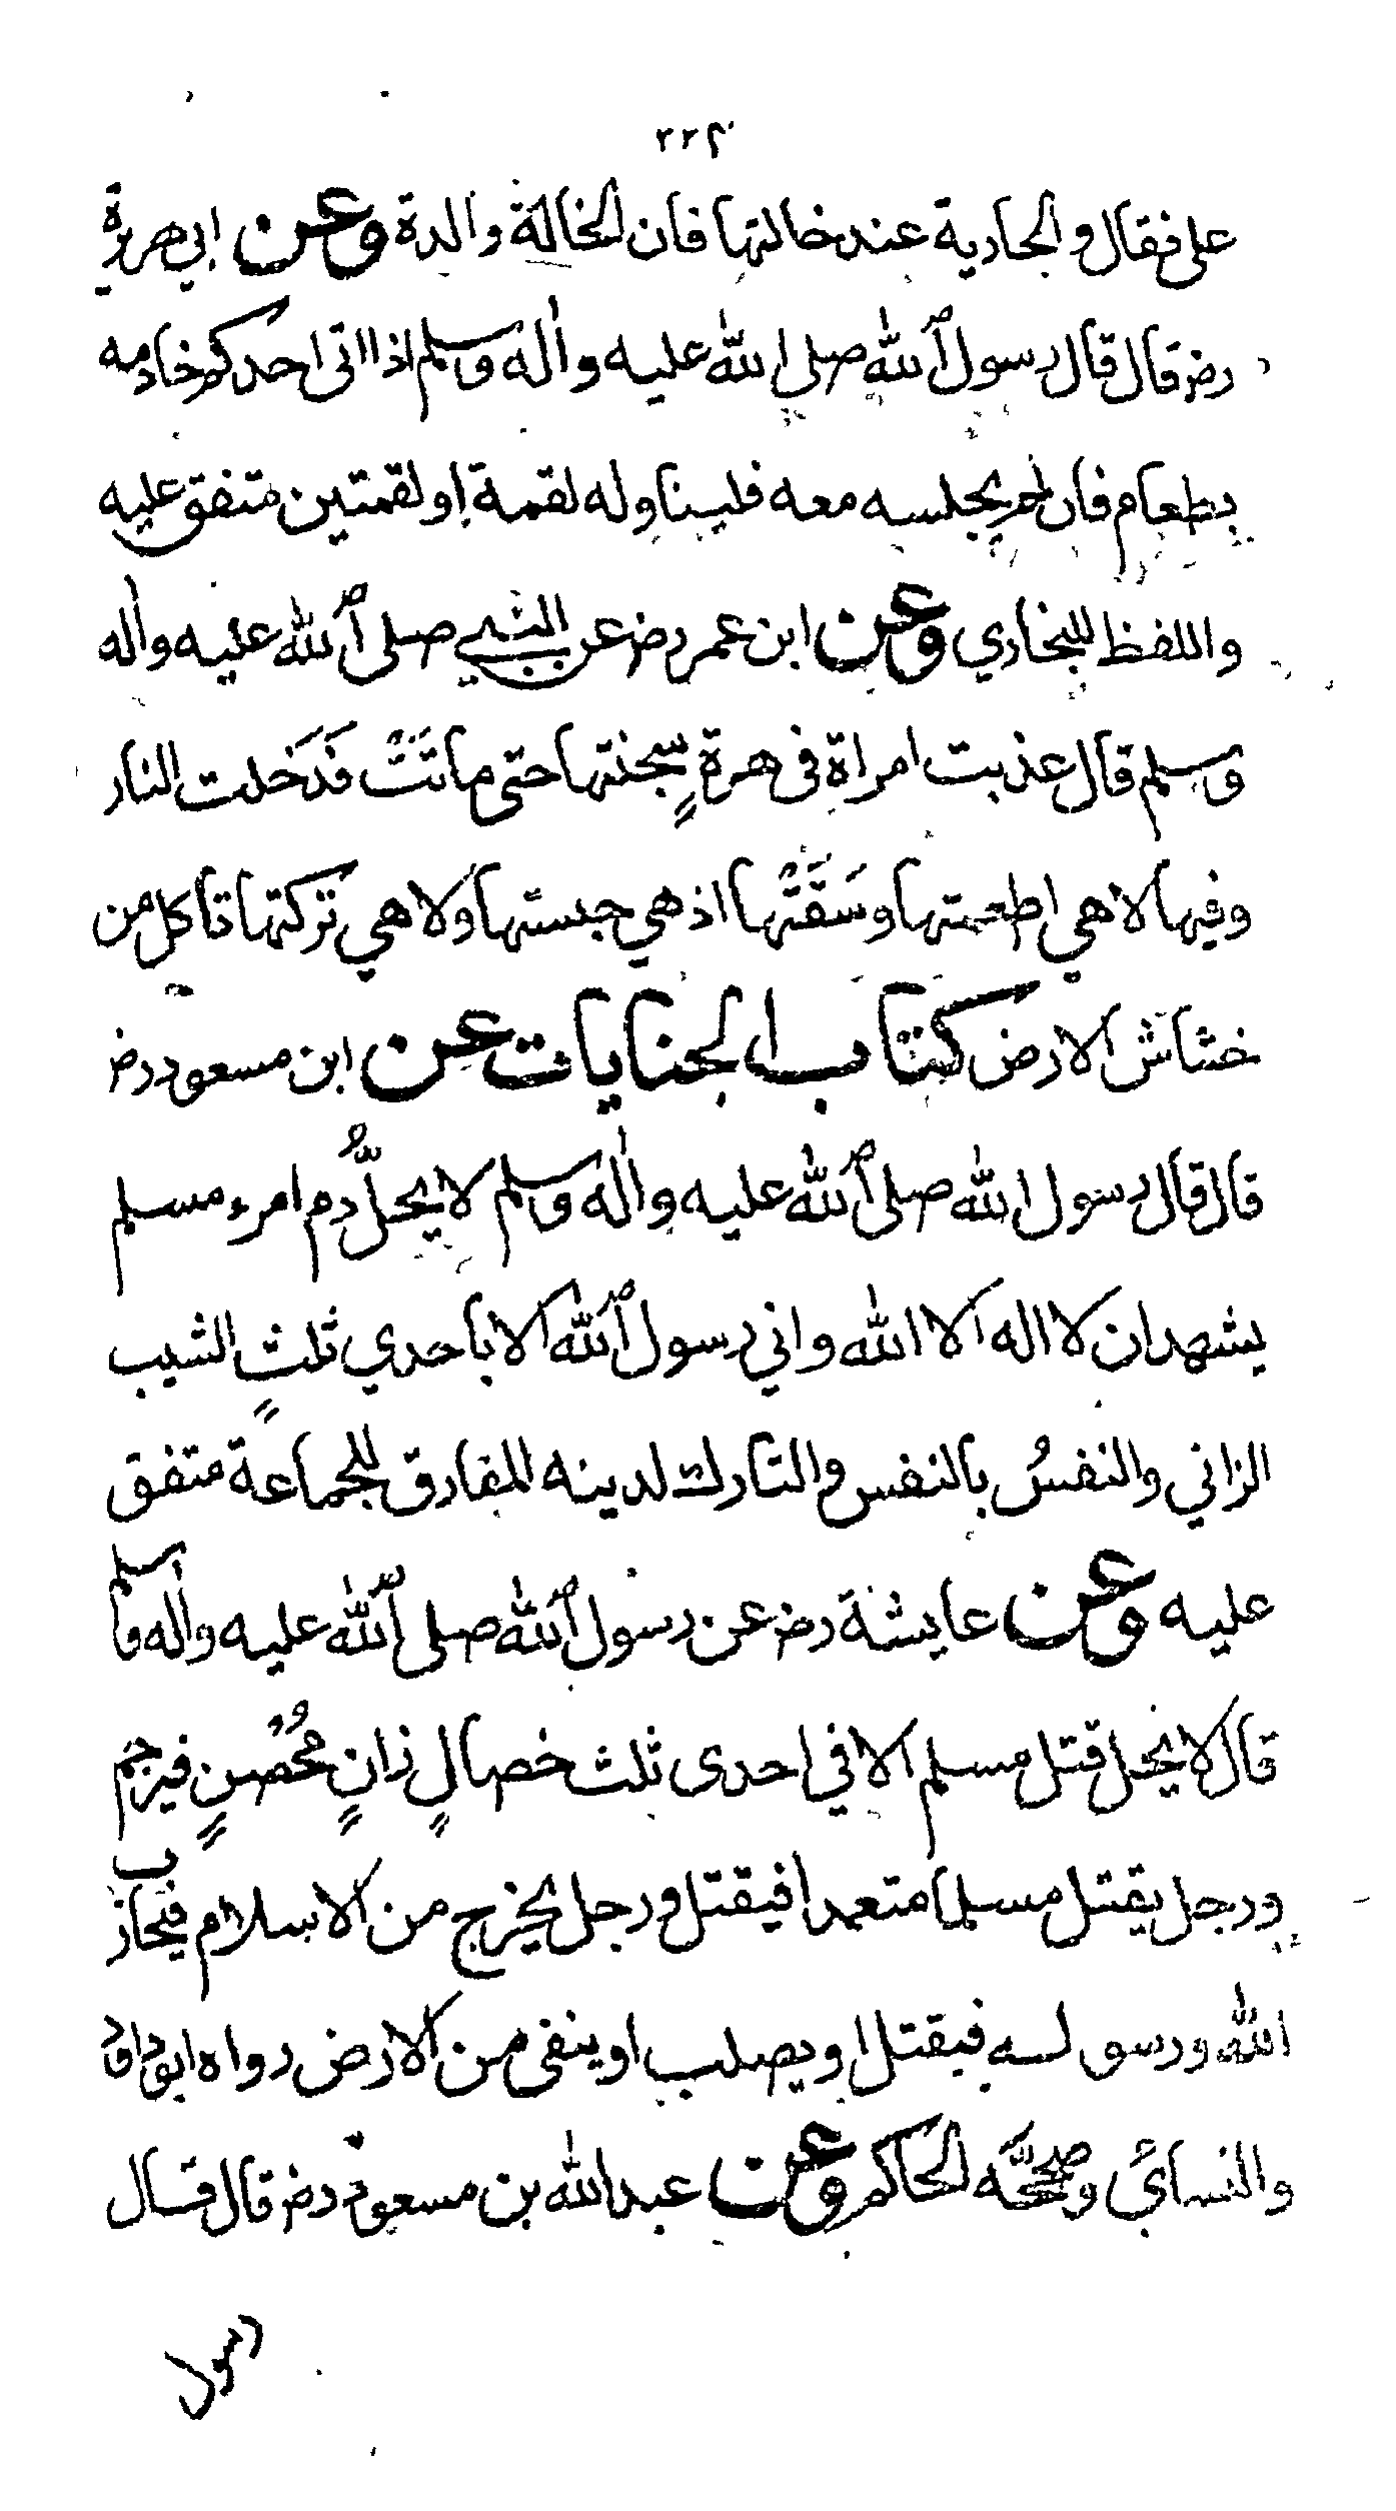 ٢٢٢
على فقال والجارية عند خالتها فان الخالة والدة وعن ابي هريرة
رض قال قال رسول الله صلى الله عليه واٰله وسلم اذا اتى احدكم خادمه
بطعام فان لم يجلسه معه فليناوله لقمة او لقمتين متفق عليه
واللفظ للبخاري وعن ابن عمر رض عن النبي صلى الله عليه واٰله
وسلم قال عذبت امراة فى هرةٍ سجنتها حتى ماتَتْ فَدَخلت النار
وفيها لا هي اطعمتها وسَقَتْها اذ هي حبستها ولا هي تركتها تاكل من
خشاش الارض كتاب الجنايات عن ابن مسعود رض
قال قال رسول الله صلى الله عليه واٰله وسلم لا يحلُّ دم امرء مسلم
يشهد ان لا اله الا الله واني رسول الله الا باحدي ثلثٍ الثيب
الزاني والنفسُ بالنفس والتارك لدينه المفارق للجماعة متفق
عليه وعن عايشة رض عن رسول الله صلى الله عليه واٰله وسلم
قال لا يحل قتل مسلم الا في احدى ثلث خصالٍ زانٍ مُحْصنٍ فيرجم
ورجل يقتل مسلما متعمدا فيقتل ورجل يخرج من الاسلام فيحارب
الله ورسوله فيقتل او يصلب او ينفى من الارض رواه ابوداود
والنسائ وصححه الحاكم وعن عبدالله بن مسعود رض قال قال